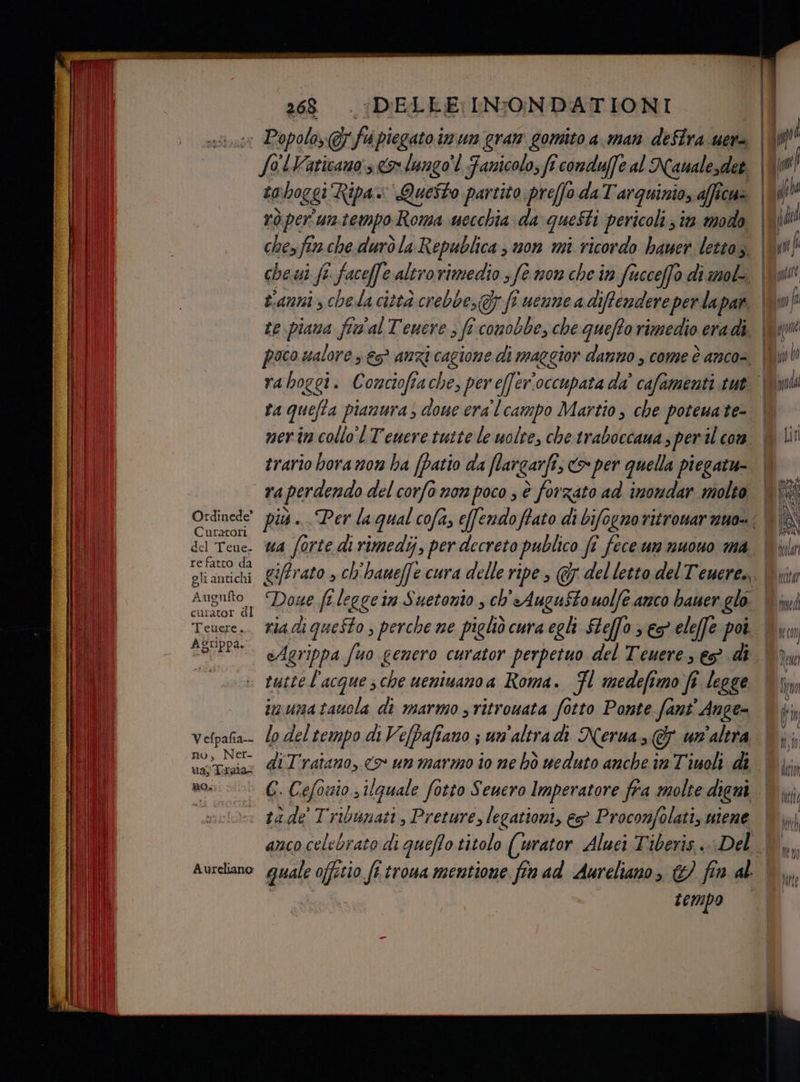 268 DELLE INONDATIONI
Popolo, & fù piegato in un gran gomito a man deſtra uer=
ſo'l Vaticano, & lungo'l Ianicolo, ſi conduſſe al Nauale, det
to hoggi Ripa. Queſto partito preſſo da Tarquinio, aſſicu=
rò per un tempo Roma uecchia da queſti pericoli, in modo
che, fin che durò la Republica, non mi ricordo hauer letto,
che ui ſi faceſſe altro rimedio, ſe non che in ſucceſſo di mol-
t'anni, che la città crebbe, & ſi uenne a diſtendere per la par
te piana fin'al Teuere, ſi conobbe, che queſto rimedio era di
poco ualore, & anzi cagione di maggior danno, come è anco-
ra hoggi. Concioſiache, per eſſer'occupata da' caſamenti tut
ta queſta pianura, doue era'l campo Martio, che poteua te-
ner in collo'l Teuere tutte le uolte, che traboccaua, per il con
trario hora non ha ſpatio da ſlargarſi, & per quella piegatu-
ra perdendo del corſo non poco, è forzato ad inondar molto
più. Per la qual coſa, eſſendo ſtato di biſogno ritrouar nuo-
ua ſorte di rimedij, per decreto publico ſi fece un nuouo ma
giſtrato, ch'haueſſe cura delle ripe, & del letto del Teuere.
Doue ſi legge in Suetonio, ch'Auguſto uolſe anco hauer glo
ria di queſto, perche ne pigliò cura egli ſteſſo, & eleſſe poi
Agrippa ſuo genero curator perpetuo del Teuere, & di
tutte l'acque, che ueniuano a Roma. Il medeſimo ſi legge
in una tauola di marmo, ritrouata ſotto Ponte ſant'Ange-
lo del tempo di Veſpaſiano; un'altra di Nerua, & un'altra
di Traiano, & un marmo io ne hò ueduto anche in Tiuoli di
C. Ceſonio, ilquale ſotto Seuero Imperatore fra molte digni
tà de' Tribunati, Preture, legationi, & Proconſolati, uiene
anco celebrato di queſto titolo Curator Aluei Tiberis. Del
quale offitio ſi troua mentione fin ad Aureliano, & fin al
tempo
Ordine de'
Curatori
del Teue-
re fatto da
gli antichi
Auguſto
curator dl
Teuere.
Agrippa.
Veſpaſia-
no, Ner-
ua, Traia-
no.
Aureliano